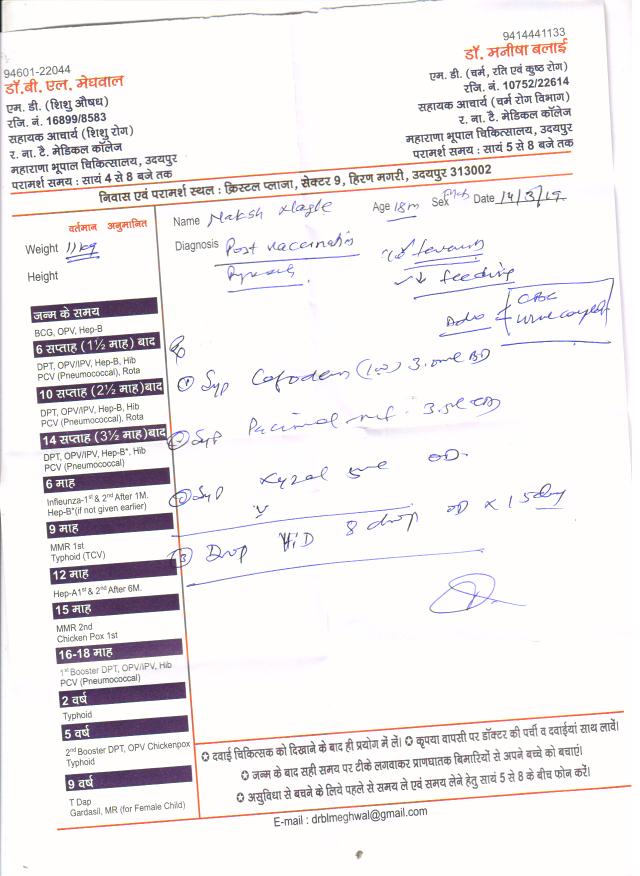 94601-22044
डॉ.बी. एल. मेघवाल
एम. डी. (शिशु औषध)
रजि. नं. 16899/8583
सहायक आचार्य (शिशु रोग)
र. ना. टै. मेडिकल कॉलेज
महाराणा भूपाल चिकित्सालय, उदयपुर
परामर्श समय : सायं 4 से 8 बजे तक
9414441133
डॉ. मनीषा बलाई
एम. डी. (चर्म, रति एवं कुष्ठ रोग)
रजि. नं. 10752/22614
सहायक आचार्य (चर्म रोग विभाग)
र. ना. टै. मेडिकल कॉलेज
महाराणा भूपाल चिकित्सालय, उदयपुर
परामर्श समय : सायं 5 से 8 बजे तक
निवास एवं परामर्श स्थल : क्रिस्टल प्लाजा, सेक्टर 9, हिरण मगरी, उदयपुर 313002
वर्तमान अनुमानित
Weight 11 kg
Height
Name Naksh Age 18m Sex Date 14/3/19
Diagnosis Post vaccination
feeding
CBC
जन्म के समय
BCG, OPV, Hep-B
6 सप्ताह (1½ माह) बाद
DPT, OPV/IPV, Hep-B, Hib
PCV (Pneumococcal), Rota
10 सप्ताह (2½ माह) बाद
DPT, OPV/IPV, Hep-B, Hib
PCV (Pneumococcal), Rota
14 सप्ताह (3½ माह) बाद
DPT, OPV/IPV, Hep-B*, Hib
PCV (Pneumococcal)
6 माह
Infleunza-1st & 2nd After 1M.
Hep-B*(if not given earlier)
9 माह
MMR 1st
Typhoid (TCV)
12 माह
Hep-A1st & 2nd After 6M.
15 माह
MMR 2nd
Chicken Pox 1st
16-18 माह
1st Booster DPT, OPV/IPV, Hib
PCV (Pneumococcal)
2 वर्ष
Typhoid
5 वर्ष
2nd Booster DPT, OPV Chickenpox
Typhoid
9 वर्ष
T Dap
Gardasil, MR (for Female Child)
① Syp BD
② Syp
Syp Xyzal OD
③ Drop 8 drop OD x 15 day
✪ दवाई चिकित्सक को दिखाने के बाद ही प्रयोग में लें। ✪ कृपया वापसी पर डॉक्टर की पर्ची व दवाईयां साथ लावें।
✪ जन्म के बाद सही समय पर टीके लगवाकर प्राणघातक बिमारियों से अपने बच्चे को बचाएं।
✪ असुविधा से बचने के लिये पहले से समय ले एवं समय लेने हेतु सायं 5 से 8 के बीच फोन करें।
E-mail : drblmeghwal@gmail.com